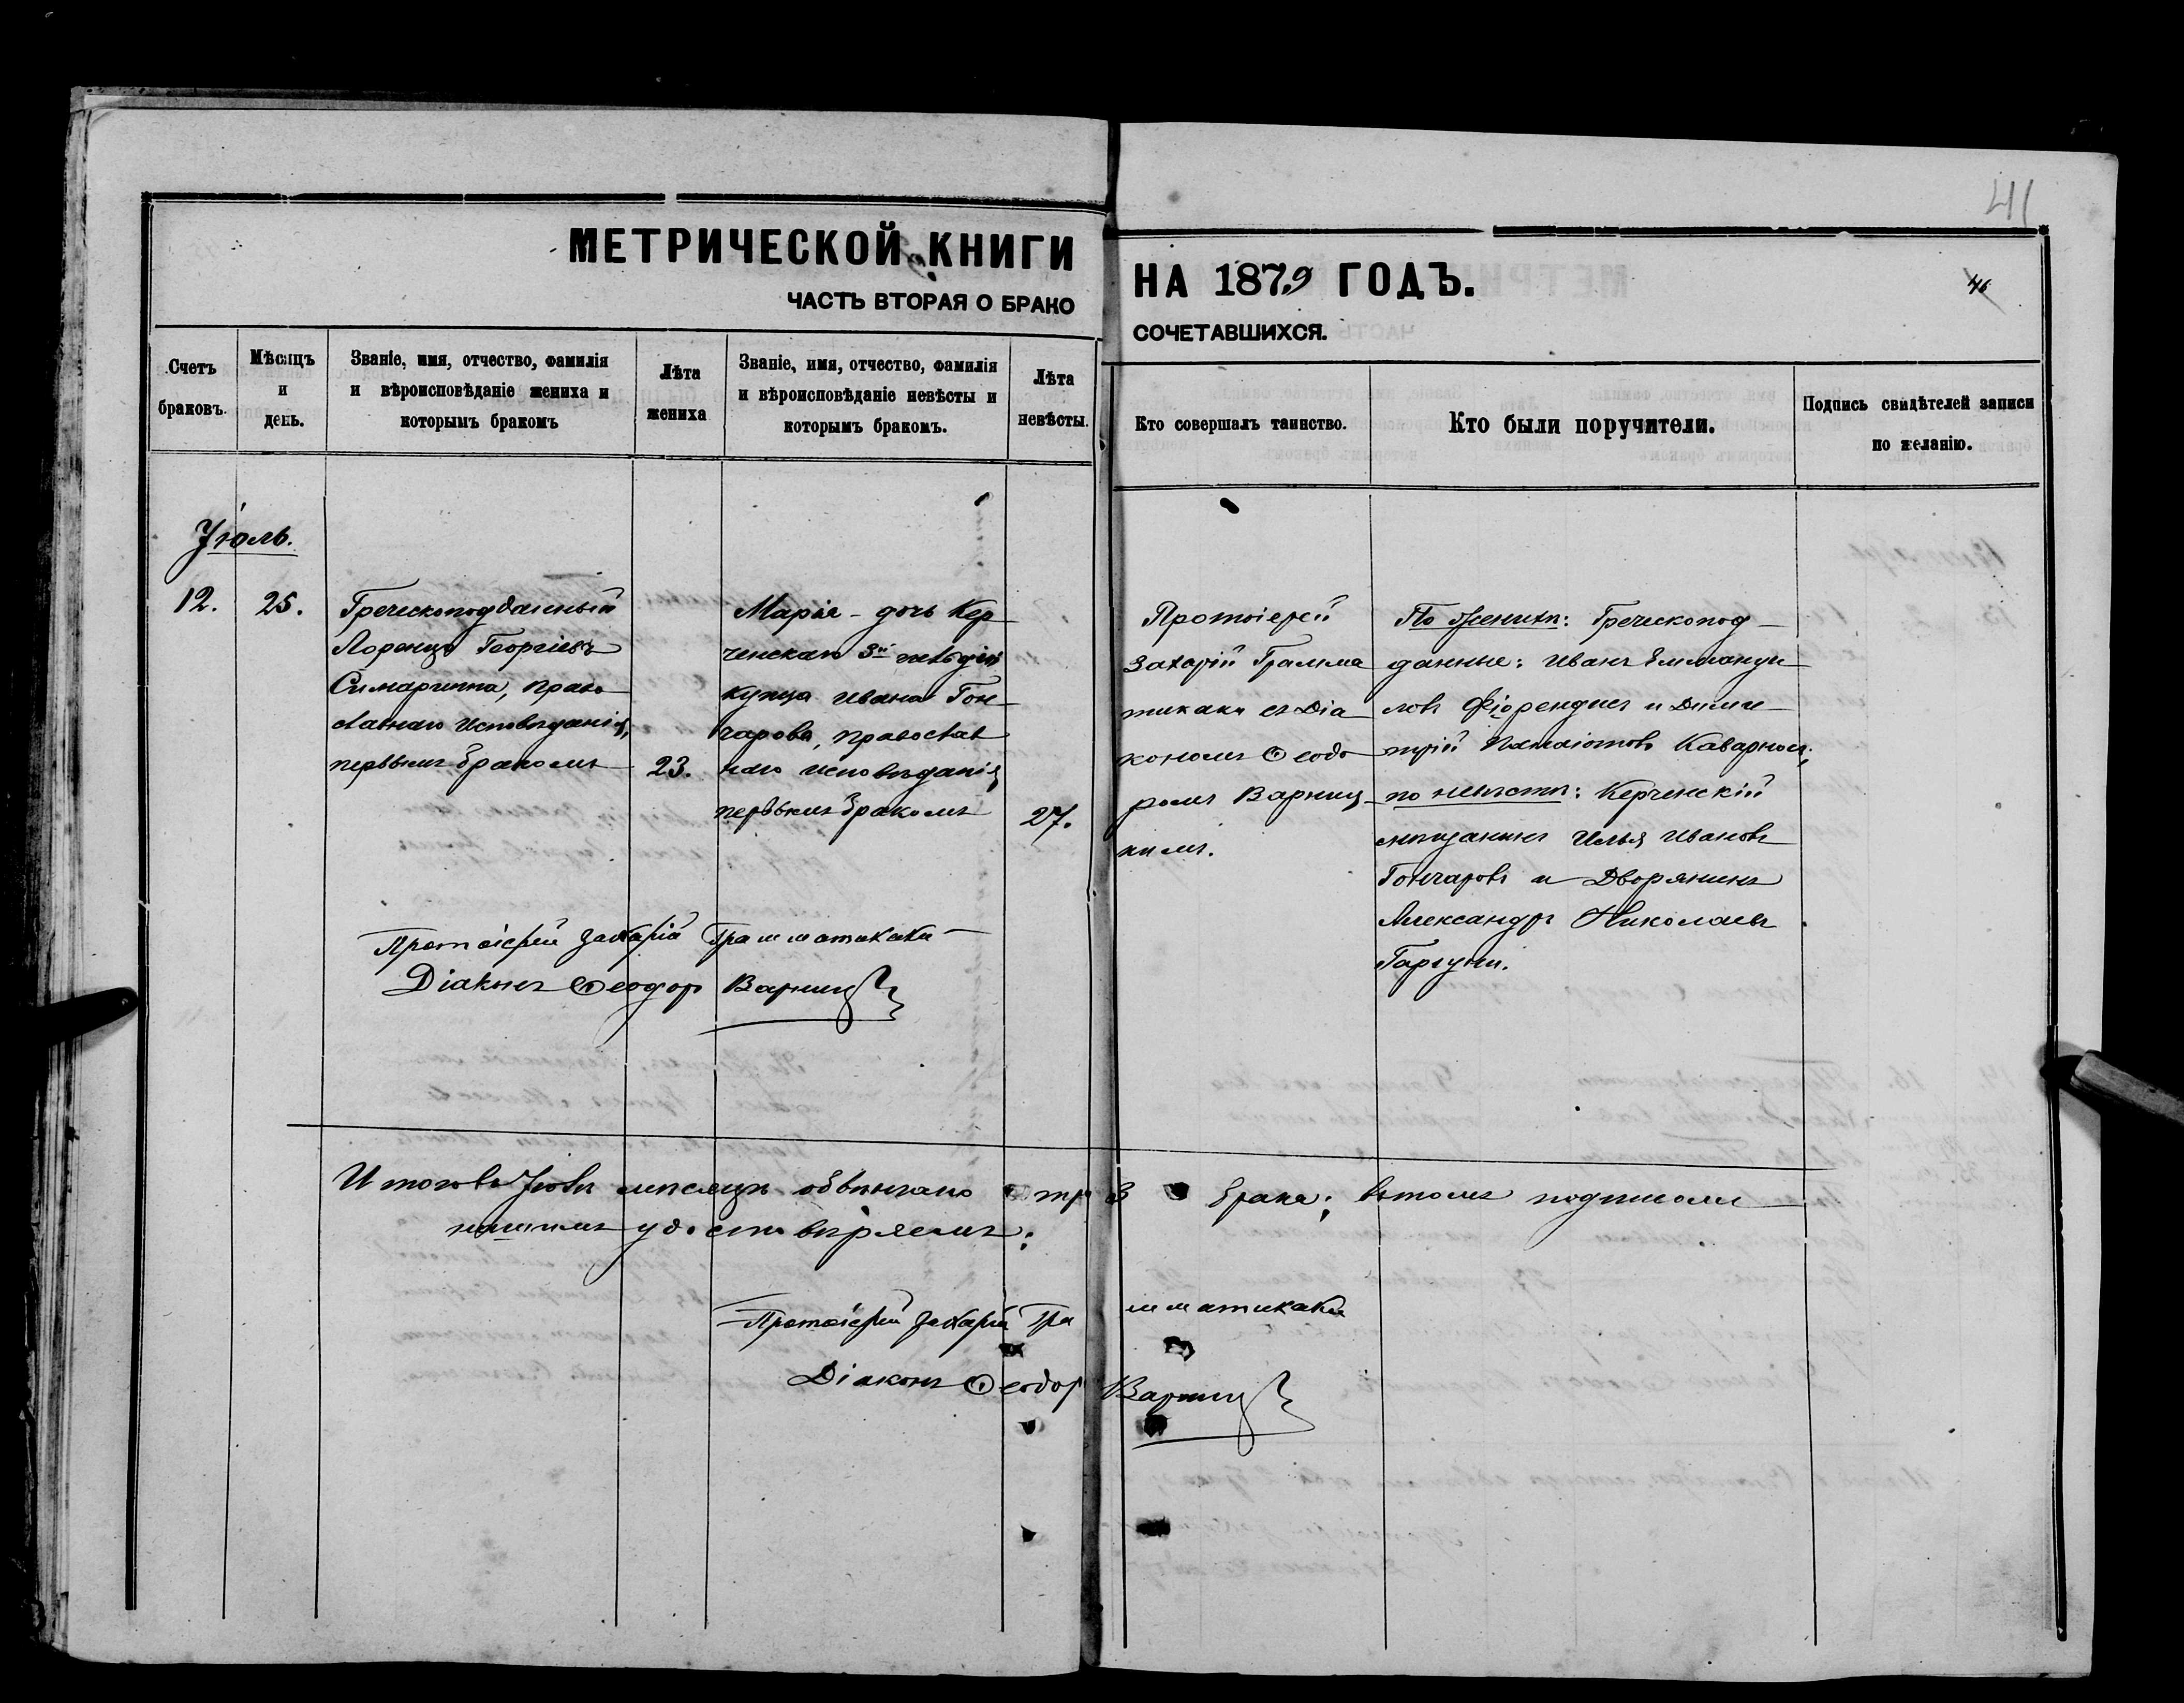 41
МЕТРИЧЕСКОЙ КНИГИ
НА 1879 ГОДЪ.
46
ЧАСТЬ ВТОРАЯ О БРАКО
СОЧЕТАВШИХСЯ.
Счетъ
браковъ.
Мѣсяцъ
и
день.
Званіе, имя, отчество, фамилія
и вѣроисповѣданіе жениха и
которымъ бракомъ
Лѣта
жениха
Званіе, имя, отчество, фамилія
и вѣроисповѣданіе невѣсты и
которымъ бракомъ.
Лѣта
невѣсты.
Кто совершалъ таинство.
Кто были поручители.
Подпись свидѣтелей записи
по желанію.
Іюль.
12.
25.
Греческоподданный
Лоренцо Георгіевъ
Симаринна, право
славнаго исповѣданія,
первымъ бракомъ
23.
Марія - дочь Кер
ченскаго 3й гильдіи
купца Ивана Гон-
чарова, православ
наго исповѣданія
первымъ бракомъ
27.
Протоіерей
Захарій Грамма
тикаки съ Діа
кономъ Ѳеодо
ромъ Варниц
кимъ.
По женихѣ: Греческопод-
данные: Иванъ Эммануи
ловъ Фіорендисъ и Дими
трій Панаіотовъ Каварносъ;
по невѣстѣ: Керченскій
мѣщанинъ Илья Ивановъ
Гончаровъ и Дворянинъ
Александръ Николаевъ
Протоіерей Захарій Грамматикаки
Діаконъ Ѳеодоръ Варниц
Итого въ Іюлѣ мѣсяцѣ обвѣнчано три 3 брака; въ томъ подписомъ
нашимъ удостовѣряемъ:
Протоіерей Захарій Грамматикаки
Діаконъ Ѳеодоръ Варниц